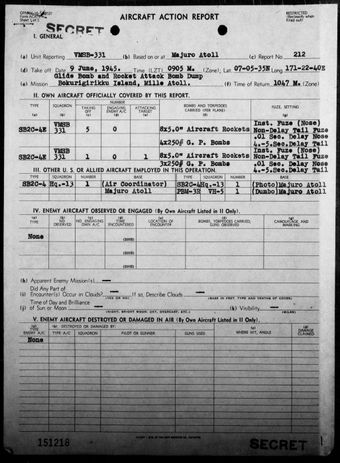 AIRCRAFT ACTION REPORT
RESTRICTED
(Reclassify when filled out)
SECRET
I. GENERAL
(a) Unit Reporting VMSB-331 (b) Based on or at Majuro Atoll (c) Report No 212
(d) Take off: Date 9 June, 1945. Time (LZT) 0905 M. (Zone); Lat 07-05-35N Long 171-22-40E
Glide Bomb and Rocket Attack Bomb Dump
(e) Mission Bokurigirikku Island, Mille Atoll. (f) Time of Return 1047 M. (Zone)
II. OWN AIRCRAFT OFFICIALLY COVERED BY THIS REPORT.
TYPE SQUADRON NUMBER TAKING OFF ENGAGING ENEMY A/C ATTACKING TARGET BOMBS AND TORPEDOES CARRIED (PER PLANE) FUZE, SETTING
SB2C-4E VMSB 331 5 0 8x5.0" Aircraft Rockets Inst. Fuze (Nose) Non-Delay Tail
4x250# G. P. Bombs .01 Sec. Delay Nose 4.-5.Sec.Delay Tail
SB2C-4E VMSB 331 1 0 8x5.0" Aircraft Rockets Inst. Fuze (Nose) Non-Delay Tail
2x250# G. P. Bombs .01 Sec. Delay Nose 4.-5.Sec.Delay Tail
III. OTHER U. S. OR ALLIED AIRCRAFT EMPLOYED IN THIS OPERATION.
TYPE SQUADRON NUMBER BASE TYPE SQUADRON NUMBER BASE
SB2C-4 Hq.-13 1 (Air Coordinator) SB2C-4 Hq.-13 1 (Photo) Majuro Atoll
Majuro Atoll PBM-3R VH-5 1 (Dumbo) Majuro Atoll
IV. ENEMY AIRCRAFT OBSERVED OR ENGAGED (By Own Aircraft Listed in II Only).
(a) TYPE (b) NO. OBSERVED (c) NO. ENGAGING OWN A/C (d) TIME ENCOUNTERED (e) LOCATION OF ENCOUNTER (f) BOMBS, TORPEDOES CARRIED; GUNS OBSERVED (g) CAMOUFLAGE AND MARKING
None
(ZONE)
(ZONE)
(ZONE)
(h) Apparent Enemy Mission(s)
Did Any Part of
(i) Encounter(s) Occur in Clouds? (YES OR NO) If so, Describe Clouds (BASE IN FEET, TYPE AND TENTHS OF COVER)
Time of Day and Brilliance
(j) of Sun or Moon (NIGHT, BRIGHT MOON; DAY, OVERCAST; ETC.) (k) Visibility (MILES)
V. ENEMY AIRCRAFT DESTROYED OR DAMAGED IN AIR (By Own Aircraft Listed in II Only).
(a) TYPE ENEMY A/C (b) DESTROYED OR DAMAGED BY: TYPE A/C SQUADRON PILOT OR GUNNER GUNS USED (c) WHERE HIT, ANGLE (d) DAMAGE CLAIMED
None
151218
SECRET